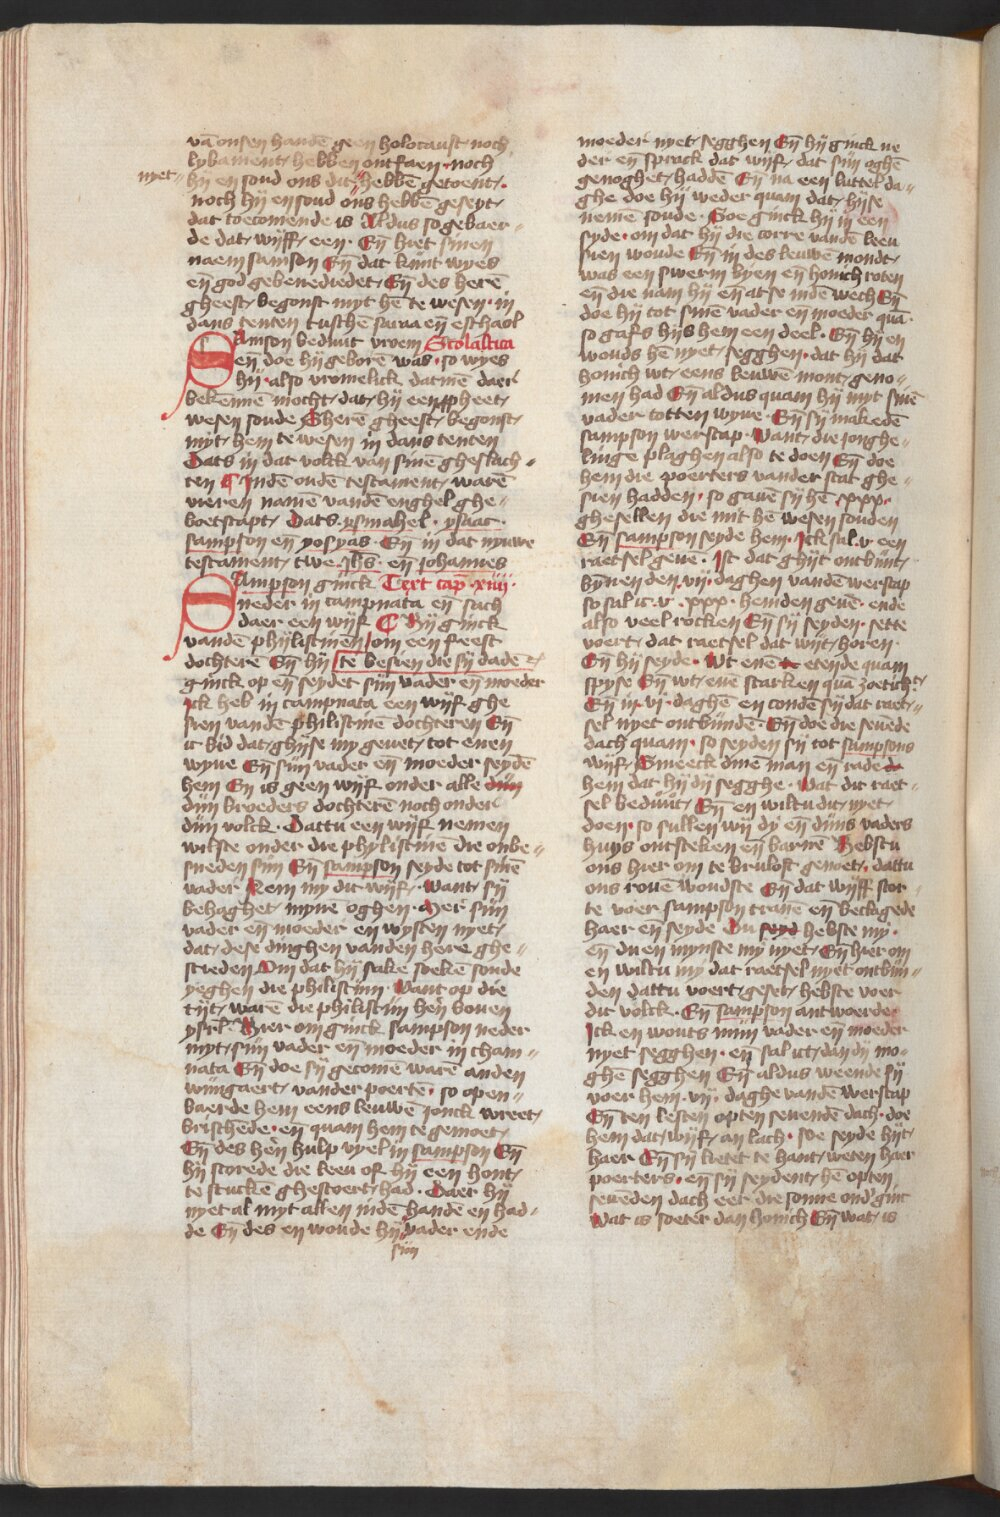 vā onsen handē geen holocaust noch
lybament hebben ontfaen noch
nyet
hij en soud ons dit hebbē getoent
noch hij en soud ons hebbē geseyt
dat toecomende is Aldus so gebaer
de dat wijff een Eñ hiet sinen
naem samson Eñ dat kijnt wyes
eñ god gebenediedet Eñ des herē
gheest begonst myt hē te wesen in
dans tenten tuschē saraa eñ esthaol
SAmson beduut vroem Scolastica
eñ doe hij geborē was so wyes
hij also vromelick datmē daer
bekennē mocht dat hij een
wesen soude Sherē gheest begonst
myt hem te wesen in dans tenten
Dats in dat volck van sinē gheslach
ten Indē oudē testament warē
vieren namē vandē enghel ghe
boetscapt Dats ysmahel ysaac
sampson en yosyas Eñ in dat nyuwe
testament twe Jhs eñ johannes
SAmpson ginck Text cap xiiij
neder in tampnata eñ sach
daer een wijf Hij ginck
vandē phijlistinen om een feest
dochterē Eñ hij te besien die sij dadē
ginck op eñ seydet sijn vader eñ moeder
Ick heb in tampnata een wijf ghe
sien vandē philistinē dochteren Eñ
ic bid dat ghijse my gevet tot enen
wyve Eñ sijn vader eñ moeder seydē
hem En is geen wijf onder alle dijn
dijn broeders dochterē noch onder
dijn volck Dattu een wijf nemen
wilste onder die phylistinē die onbe
sneden sijn Eñ sampson seyde tot sinē
vader Nem my dit wijf Want sij
behaghet mynē oghen Mer sijn
vader eñ moeder en wysten nyet
dat dese dinghen vanden here ghe
scieden Om dat hij sake soekē soude
yeghen die philistinn Want op die
tijt warē die philistijn hen boven
ysrl Hier om ginck sampson neder
myt sijn vader eñ moeder in tham
nata Eñ doe sij gecomē warē anden
wijngaert vander poertē so open
baerde hem eens leuwē jonck wreet
brischēde eñ quam hem te gemoet
Eñ des hēn hulp vyel in sampson Eñ
hij scorede die leeu of hij een hont
te stuckē ghescoert had Daer hij
nyet al myt allen indē handē en had
de Eñ des en woude hij vader ende
sijn
moeder nyet segghen Eñ hij ginck ne
der eñ sprack dat wijf dat sijn oghē
genoghet haddē Eñ na een luttel da
ghe doe hij weder quam dat hijse
nemē soude Soe ginck hij in een
syde om dat hij die corre vandē leeu
sien woude Eñ in des leuwē mondt
was een swerm byen eñ honich roten
eñ die nam hij eñ at se indē wech Eñ
doe hij tot sinē vader eñ moeder quā
so gafs hijs hem een deel Eñ hij en
wouds hē nyet segghen dat hij dat
honich wt eens leuwē mont geno
men had Eñ aldus quam hij myt sinē
vader totten wyve Eñ sij makedē
sampson werscap Want die jonghe
linge plaghen also te doen Eñ doe
hem die poerters vander stat ghe
sien hadden so gavē sij hē xxx
ghesellen die mit hē wesen souden
Eñ sampson seyde hem Ick sal v een
raetsel geve Ist dat ghijt ontbint
bynen den vij daghen vandē werscap
so sal ic v xxx hemden gevē ende
also veel rocken Eñ sij seyden sette
voert dat raetsel dat wijt horen
Eñ hij seyde Wt enē etende quam
spyse Eñ wt enē starken quā zoeticht
Eñ in vj daghē en condē sij dat raet
sel nyet ontbindē Eñ doe die sevēde
dach quam so seyden sij tot sampsons
wijf Smeeck dinē man eñ rade
hem dat hij dij segghe Wat dit raet
sel beduut Eñ en wiltu dit nyet
doen so sullen wij dy eñ dijns vaders
huys ontsteken eñ barnē Hebstu
ons hier om te brulost genoet dattu
ons rovē woudste Eñ dat wijff stor
te voer sampson tranē eñ beclagede
haer eñ seyde Du seyd hebste my
eñ du en mynste my nyet Eñ hier om
en wiltu my dat raetsel nyet ontbin
den dattu voert geset hebste voer
dit volck Eñ sampson antwoerde
Ick en wouts mijn vader eñ moeder
nyet segghen eñ sal ict dan dij mo
ghē segghen Eñ aldus weende sij
voer hem vij daghe vandē werscap
Eñ ten lesten opten sevendē dach doe
hem dat wijf an lach soe seyde hijt
haer Eñ sij lietet te hant weten haer
poerters eñ sij seydent hē opten
sevēden dach eer die sonne ond ginc
Wat is soeter dan honich Eñ wat is